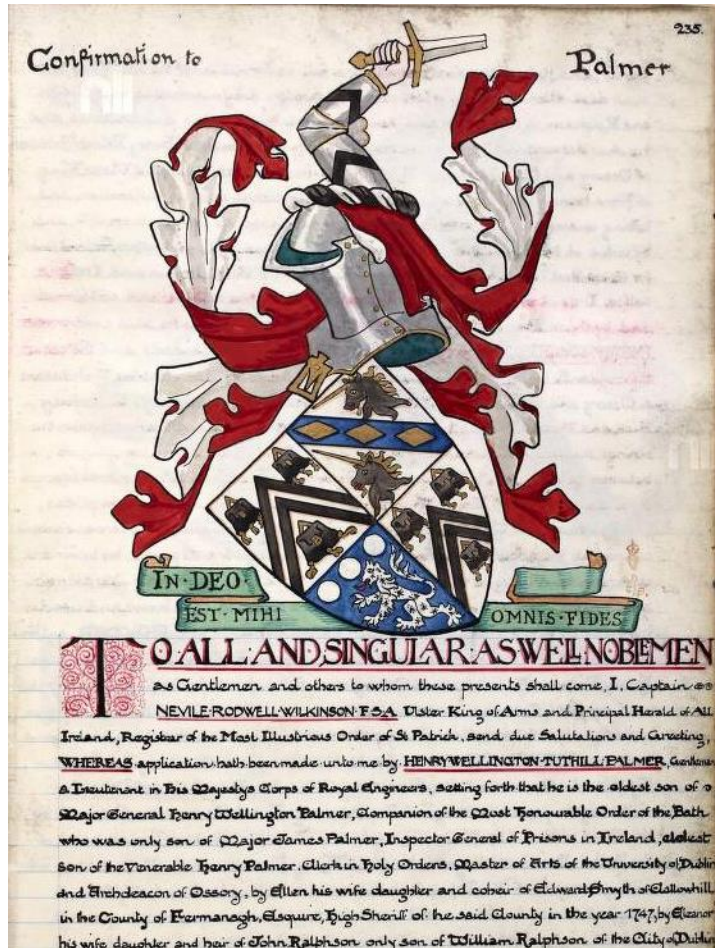 235.
Confirmation to Palmer
IN·DEO·
EST·MIHI OMNIS·FIDES
TO ALL·AND,SINGULAR·AS WELL NOBLEMEN
as Gentlemen and others to whom these presents shall come, I, Captain
NEVILE·RODWELL·WILKINSON·F·S·A Ulster King of Arms and Principal Herald of All
Ireland, Registrar of the Most Illustrious Order of St Patrick, send due Salutations and Greeting,
WHEREAS application hath been made unto me by HENRY WELLINGTON·TUTHILL·PALMER, Gentleman
a Lieutenant in His Majestys Corps of Royal Engineers, setting forth that he is the eldest son of
Major General Henry Wellington Palmer, Companion of the Most Honourable Order of the Bath
who was only son of Major James Palmer, Inspector General of Prisons in Ireland, eldest
son of the Venerable Henry Palmer, Clerk in Holy Orders, Master of Arts of the University of Dublin
and Archdeacon of Ossory, by Ellen his wife daughter and coheir of Edward Smyth of Callowhill
in the County of Fermanagh, Esquire, High Sheriff of the said County in the year 1747, by Eleanor
his wife daughter and heir of John Ralphson only son of William Ralphson of the City of Dublin